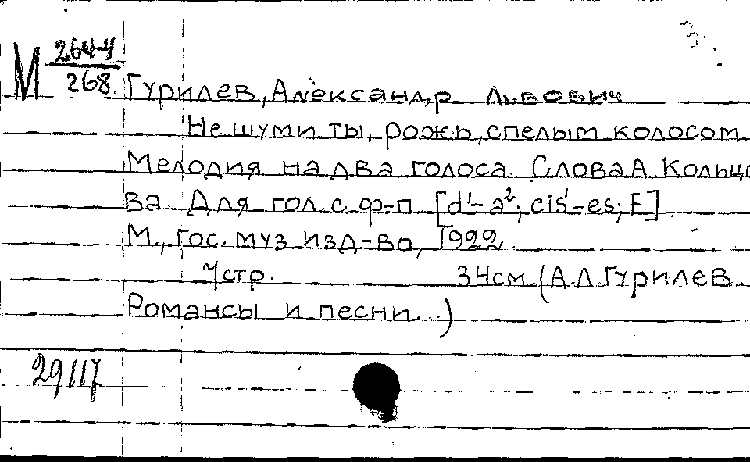 М 264-4
268
Гурилев, Александр Львович
Не шуми ты, рожь, спелым колосом
Мелодия на два голоса. Слова А. Кольцо
ва. Для гол. с. ф-п [d¹-a²; cis¹-es; F]
М., гос. муз изд-во, 1922.
7 стр. 34 см (А.Л. Гурилев
Романсы и песни..)
29117